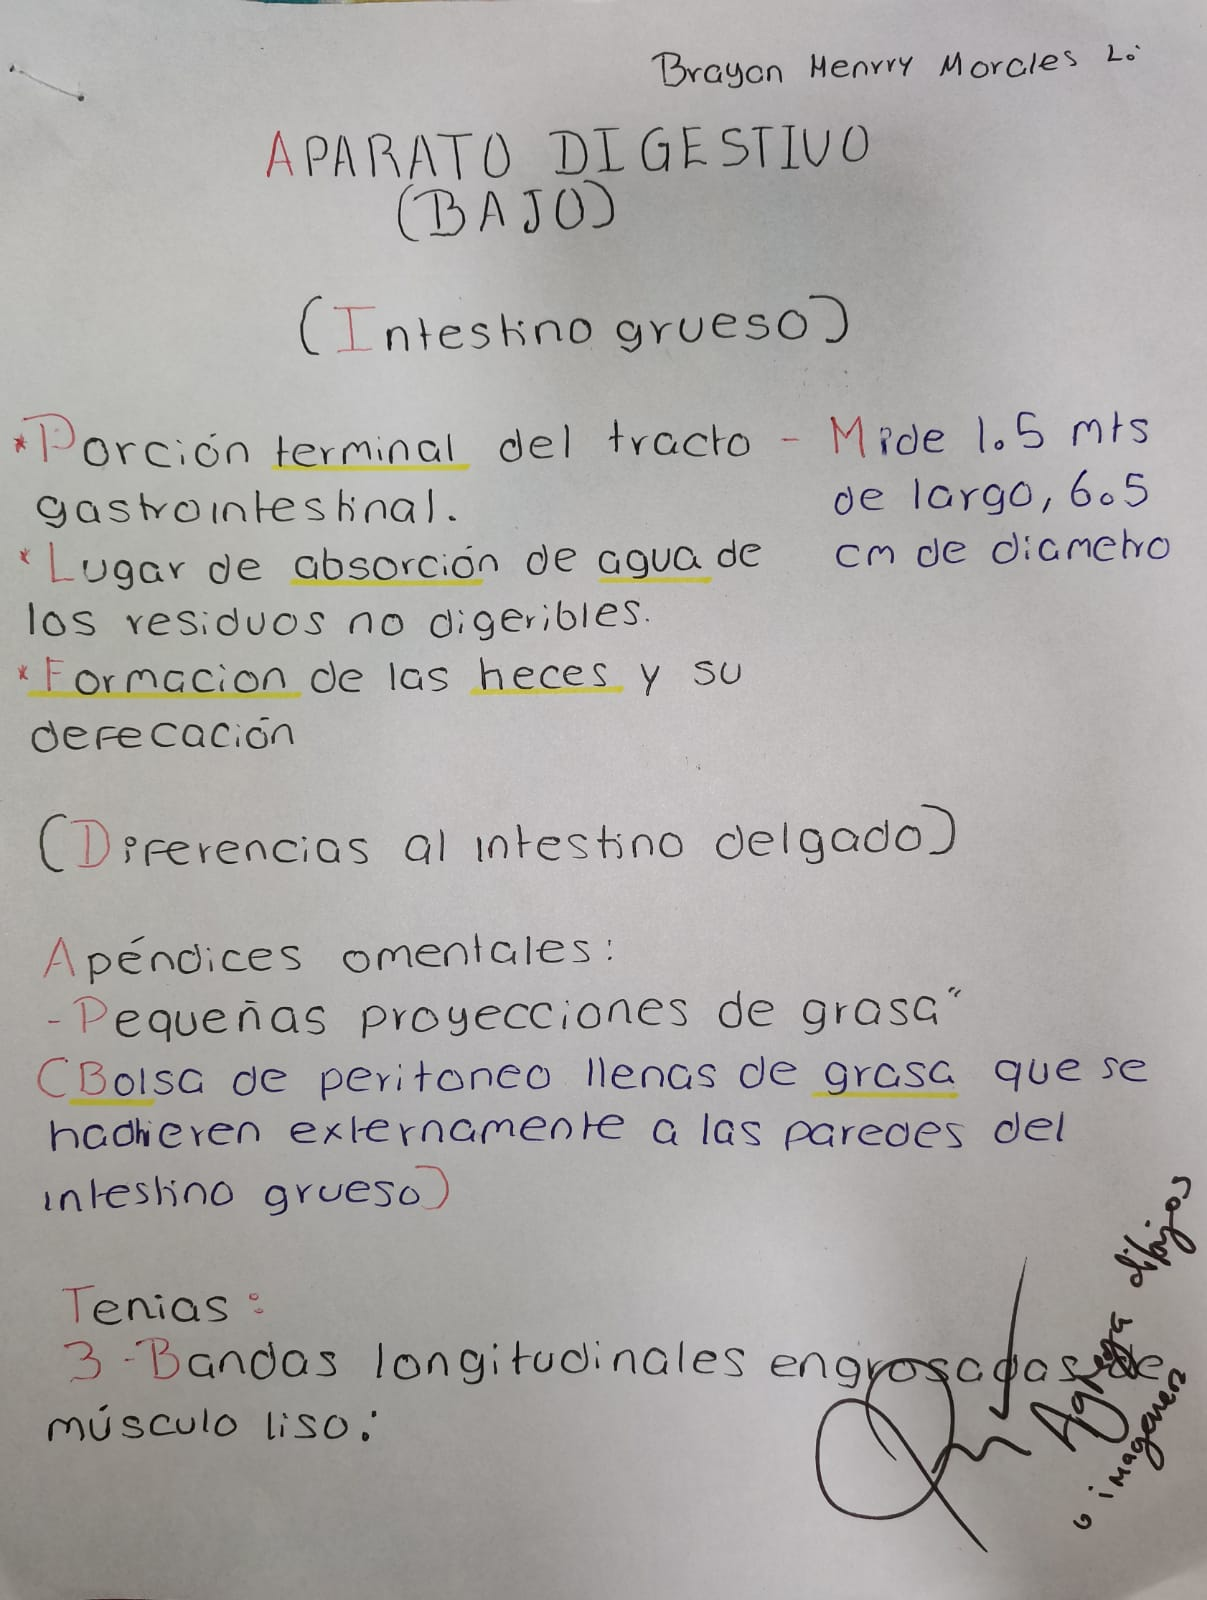 Brayan Henrry Morales L.
APARATO DIGESTIVO
(BAJO)
(Intestino grueso)
*Porción terminal del tracto
gastrointestinal.
*Lugar de absorción de agua de
los residuos no digeribles.
*Formacion de las heces y su
defecación
- Mide 1.5 mts
de largo, 6.5
cm de diametro
(Diferencias al intestino delgado)
Apéndices omentales:
-Pequeñas proyecciones de grasa"
(Bolsa de peritoneo llenas de grasa que se
hadhieren externamente a las paredes del
intestino grueso)
Tenias:
3-Bandas longitudinales engrosadas de
músculo liso:
Agrega dibujos
o imagenes